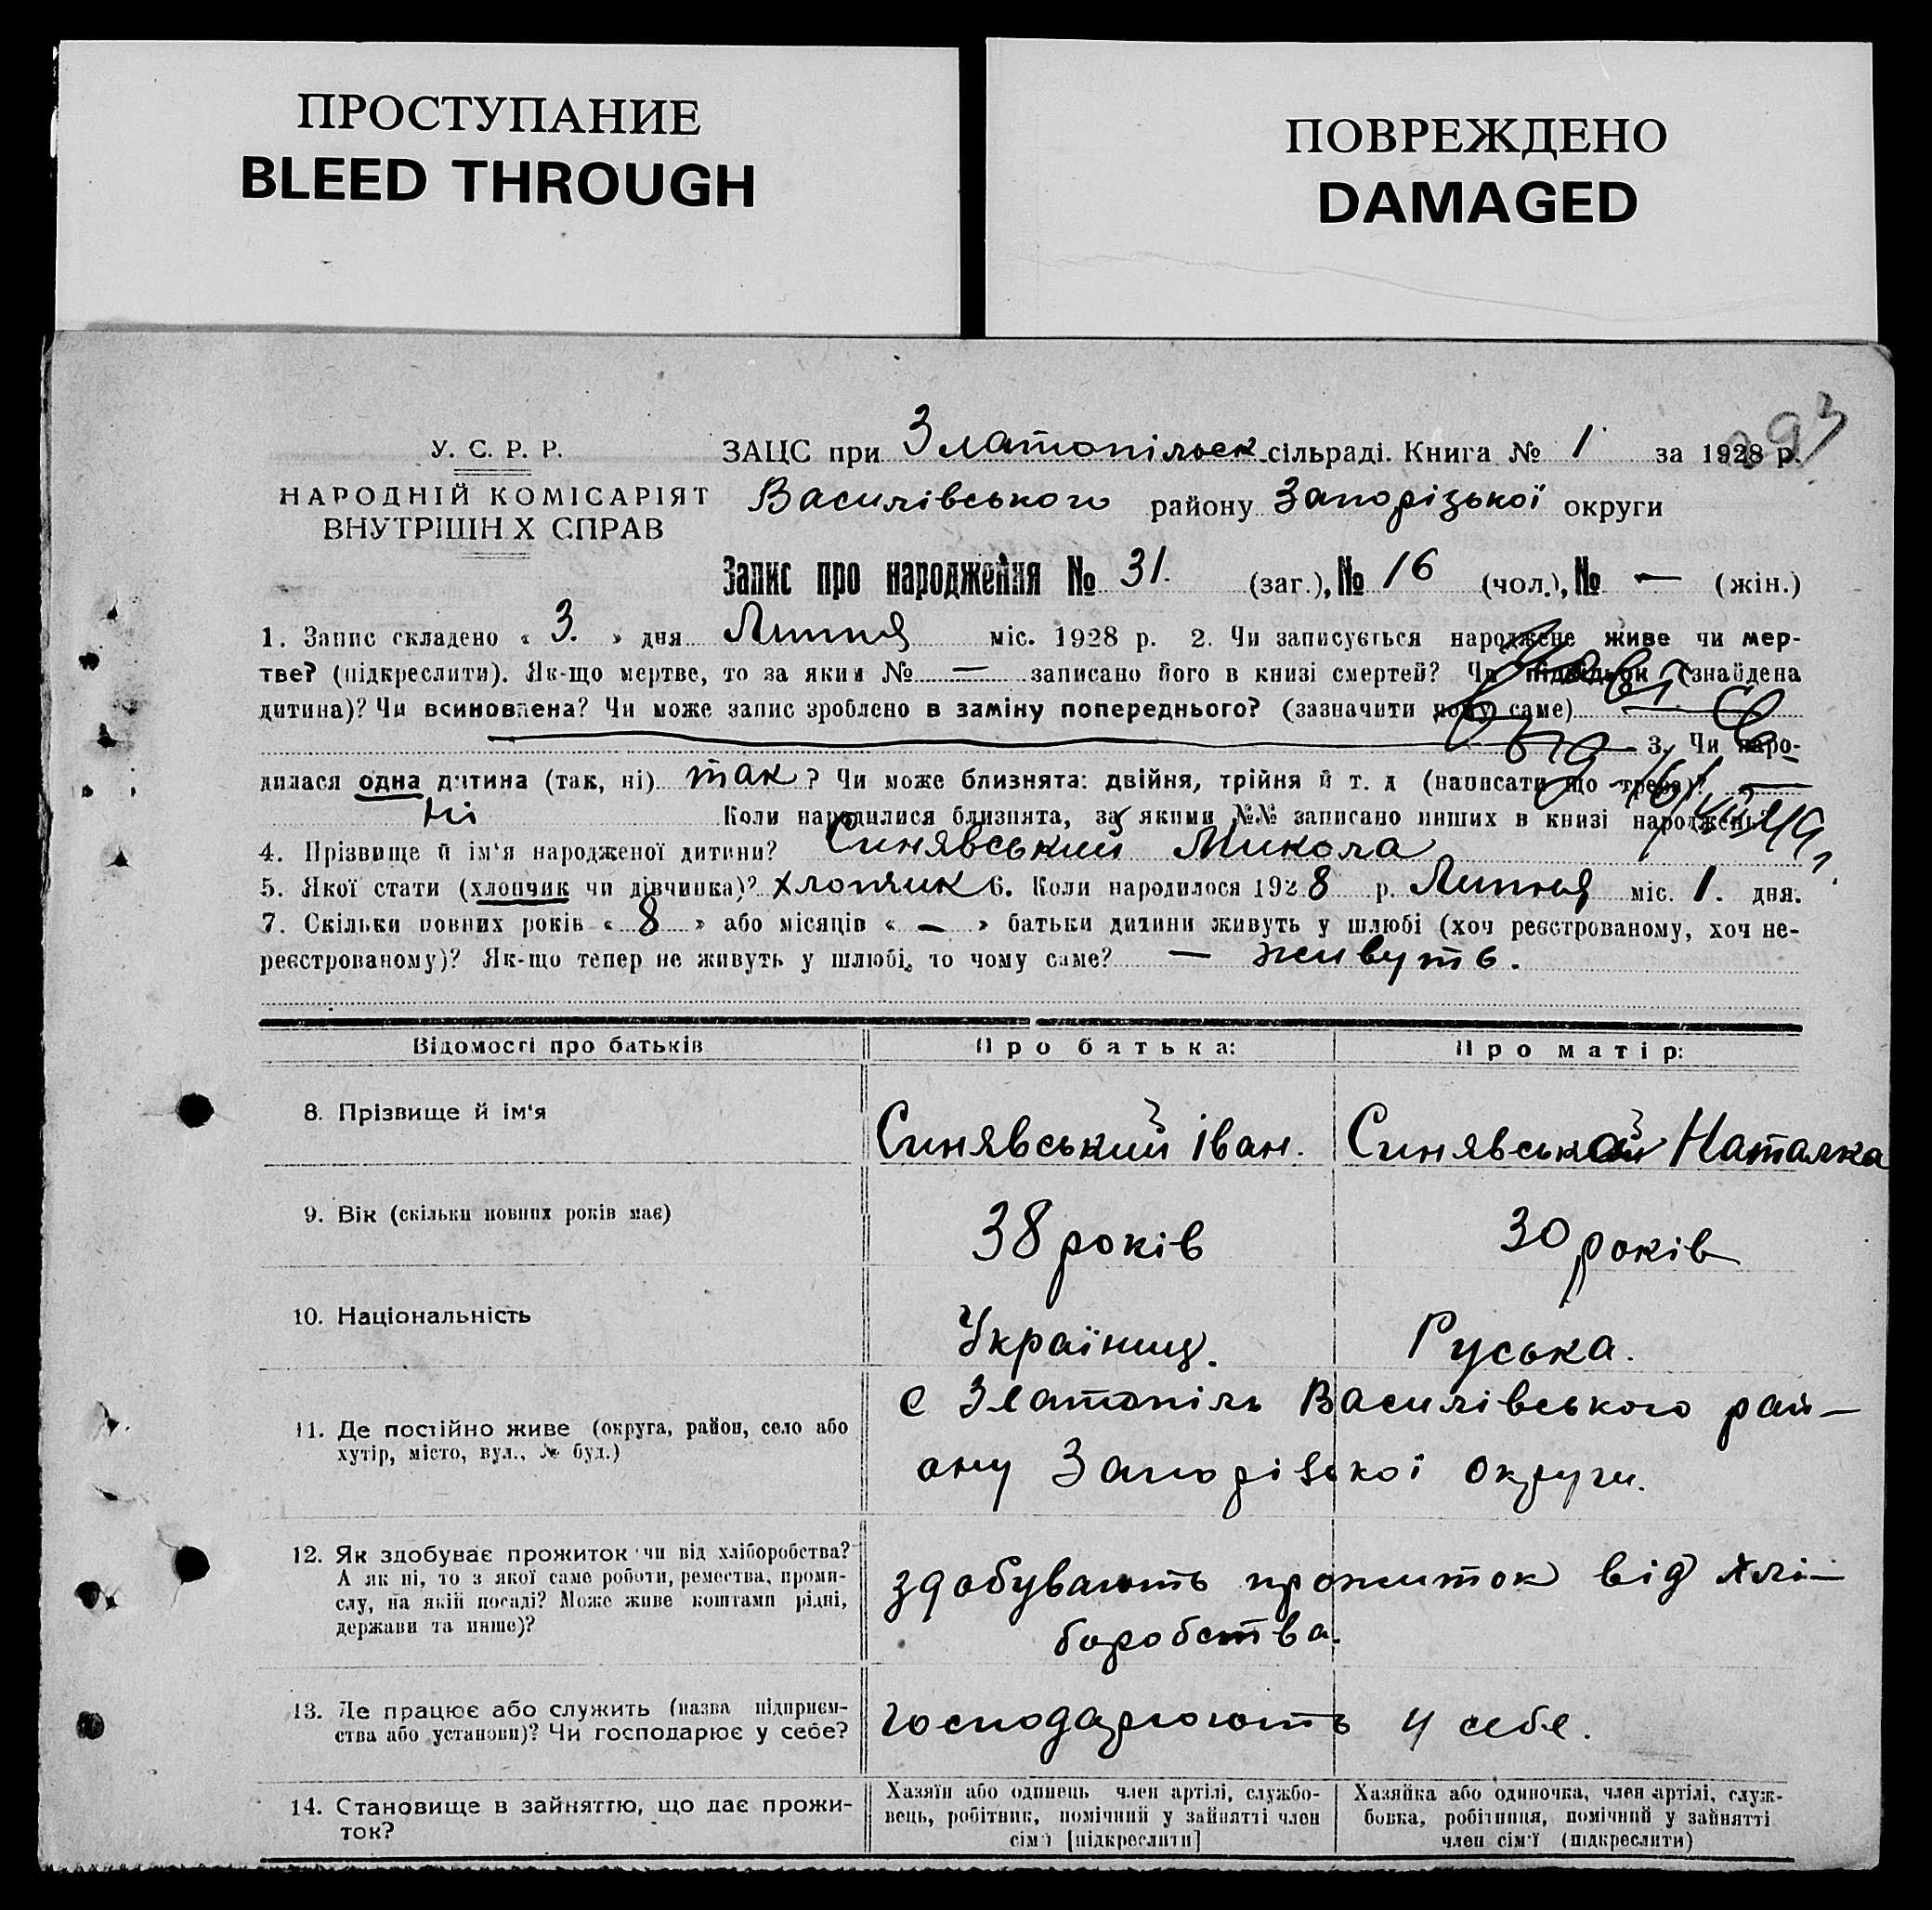 ПРОСТУПАНИЕ
BLEED THROUGH
ПОВРЕЖДЕНО
DAMAGED
293
У. С. Р. Р.
НАРОДНІЙ КОМІСАРІЯТ
ВНУТРІШН Х СПРАВ
ЗАЦС при Златопільськ. сільраді. Книга № 1 за 1928 р.
Василівського району Запорізької округи
Запис про народження № 31. (заг.), № 16 (чол.), № — (жін.)
1. Запис складено « 3. » дня Липня міс. 1928 р. 2. Чи записується народжене живе чи мер-
тве? (підкреслити). Як-що мертве, то за яким № — записано його в книзі смертей? Чи підкидьок (знайдена
дитина)? Чи всиновлена? Чи може запис зроблено в заміну попереднього? (зазначити чому саме)
3. Чи наро-
дилася одна дитина (так, ні) так ? Чи може близнята: двійня, трійня й т. д (написати що треба)? —
ні Коли народилися близнята, за якими №№ записано инших в книзі народжень?
4. Прізвище й ім'я народженої дитини? Синявський Микола
5. Якої стати (хлопчик чи дівчинка)? хлопчик 6. Коли народилося 1928 р. Липня міс. 1. дня.
7. Скільки повних років « 8 » або місяців « — » батьки дитини живуть у шлюбі (хоч реєстрованому, хоч не-
реєстрованому)? Як-що тепер не живуть у шлюбі, то чому саме? — живуть.
Відомості про батьків
Про батька:
Про матір:
8. Прізвище й ім'я
Синявський Іван.
Синявськай Наталка
9. Вік (скільки повних років має)
38 років
30 років
10. Національність
Українць.
Руська.
11. Де постійно живе (округа, район, село або
хутір, місто, вул., № буд.)
с Златопіль Василівського рай-
ону Запорізької округи.
12. Як здобуває прожиток чи від хліборобства?
А як ні, то з якої саме роботи, ремества, проми-
слу, на якій посаді? Може живе коштами рідні,
держави та инше)?
здобувають прожиток від хлі-
боробства.
13. Де працює або служить (назва підприєм-
ства або установи)? Чи господарює у себе?
господарюють у себе.
14. Становище в зайняттю, що дає прожи-
ток?
Хазяїн або одинець член артілі, службо-
вець, робітник, помічний у зайнятті член
сім'ї [підкреслити]
Хазяйка або одиночка, член артілі, служ-
бовка, робітниця, помічний у зайнятті
член сім'ї (підкреслити)